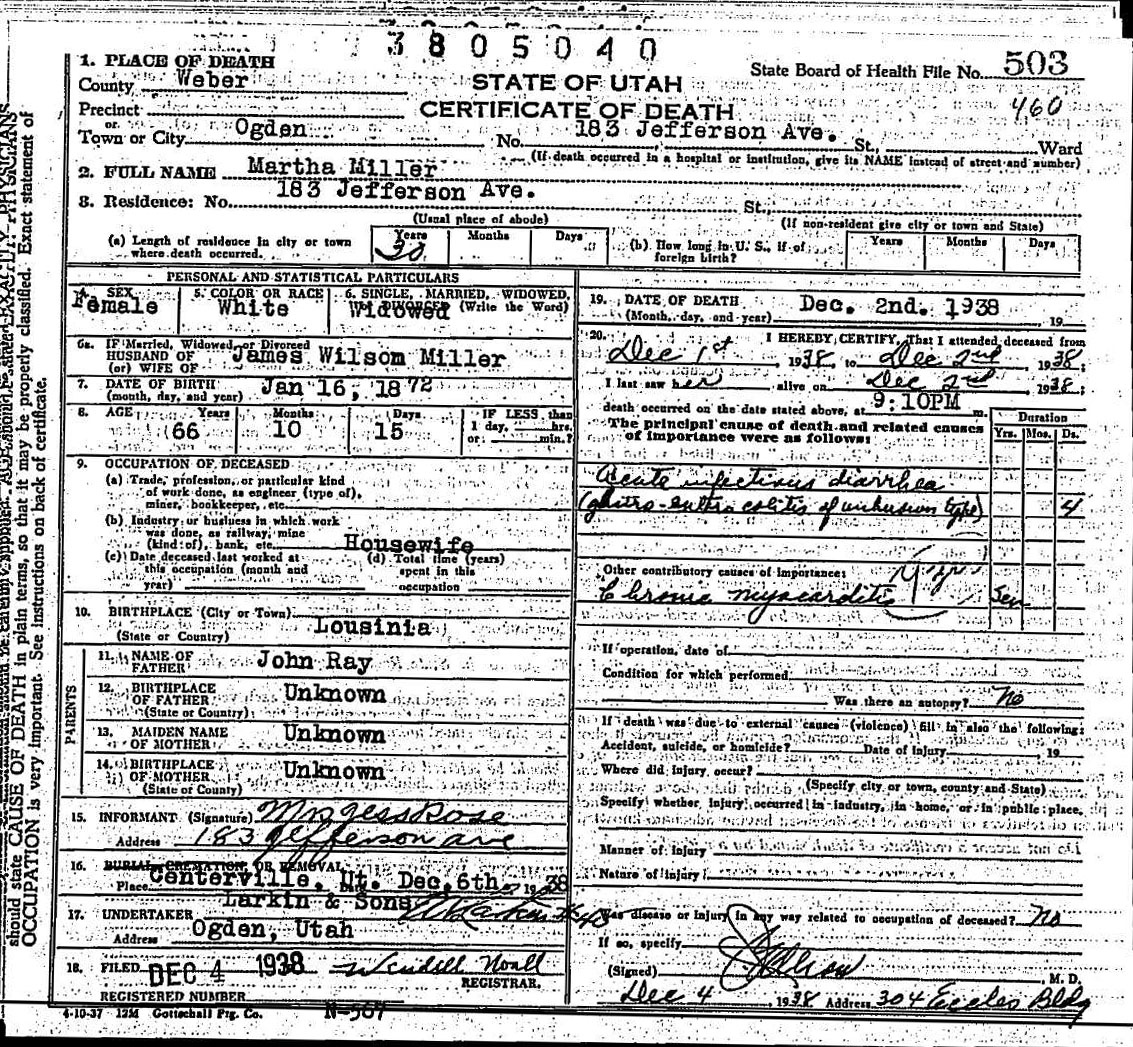 3805040
1. PLACE OF DEATH
State Board of Health File No. 503
County Weber
STATE OF UTAH
460
Precinct
CERTIFICATE OF DEATH
or
Town or City Ogden No. 183 Jefferson Ave. St., Ward
(If death occurred in a hospital or institution, give its NAME instead of street and number)
2. FULL NAME Martha Miller
3. Residence: No. 183 Jefferson Ave. St.,
(Usual place of abode) (If non-resident give city or town and State)
(a) Length of residence in city or town where death occurred. Years 30 Months Days
(b) How long in U. S., if of foreign birth? Years Months Days
PERSONAL AND STATISTICAL PARTICULARS
4. SEX Female
5. COLOR OR RACE White
6. SINGLE, MARRIED, WIDOWED, OR DIVORCED (Write the Word) Widowed
6a. IF Married, Widowed, or Divorced
HUSBAND OF
(or) WIFE OF James Wilsom Miller
7. DATE OF BIRTH Jan 16, 1872
(month, day, and year)
8. AGE Years 66 Months 10 Days 15 IF LESS than 1 day, hrs. or min.?
9. OCCUPATION OF DECEASED
(a) Trade, profession, or particular kind
of work done, as engineer (type of),
miner, bookkeeper, etc.
(b) Industry or business in which work
was done, as railway, mine
(kind of), bank, etc. Housewife
(c) Date deceased last worked at this occupation (month and year)
(d) Total time (years) spent in this occupation
10. BIRTHPLACE (City or Town) Lousinia
(State or Country)
PARENTS
11. NAME OF FATHER John Ray
12. BIRTHPLACE OF FATHER Unknown
(State or Country)
13. MAIDEN NAME OF MOTHER Unknown
14. BIRTHPLACE OF MOTHER Unknown
(State or Country)
15. INFORMANT (Signature) Mrs Jess Rose
Address 183 Jefferson ave
16. BURIAL, CREMATION, OR REMOVAL
Place Centerville, Ut. Dec. 6th, 1938
17. UNDERTAKER Larkin & Sons
Address Ogden, Utah
18. FILED DEC 4 1938 Wendell Noall
REGISTRAR.
REGISTERED NUMBER
4-10-37 12M Gottschall Ptg. Co. N-567
19. DATE OF DEATH Dec. 2nd. 1938
(Month, day, and year) 19
20. I HEREBY CERTIFY, That I attended deceased from
Dec 1st, 1938, to Dec 2nd, 1938;
I last saw her alive on Dec 2nd, 1938;
death occurred on the date stated above, at 9:10PM m.
The principal cause of death and related causes
of importance were as follows:
Duration
Yrs. Mos. Ds.
Acute infectious diarrhea
(gastro-entero colitis of unknown type) 4
Other contributory causes of importance:
Chronic myocarditis Sev
If operation, date of
Condition for which performed
Was there an autopsy? No
If death was due to external causes (violence) fill in also the following:
Accident, suicide, or homicide? Date of injury, 19
Where did injury occur?
(Specify city or town, county and State)
Specify whether injury occurred in industry, in home, or in public place.
Manner of injury
Nature of injury
Was disease or injury in any way related to occupation of deceased? No
If so, specify
(Signed) M. D.
Dec 4, 1938 Address 304 Eccles Bldg
should state CAUSE OF DEATH in plain terms, so that it may be properly classified. Exact statement of
OCCUPATION is very important. See instructions on back of certificate.